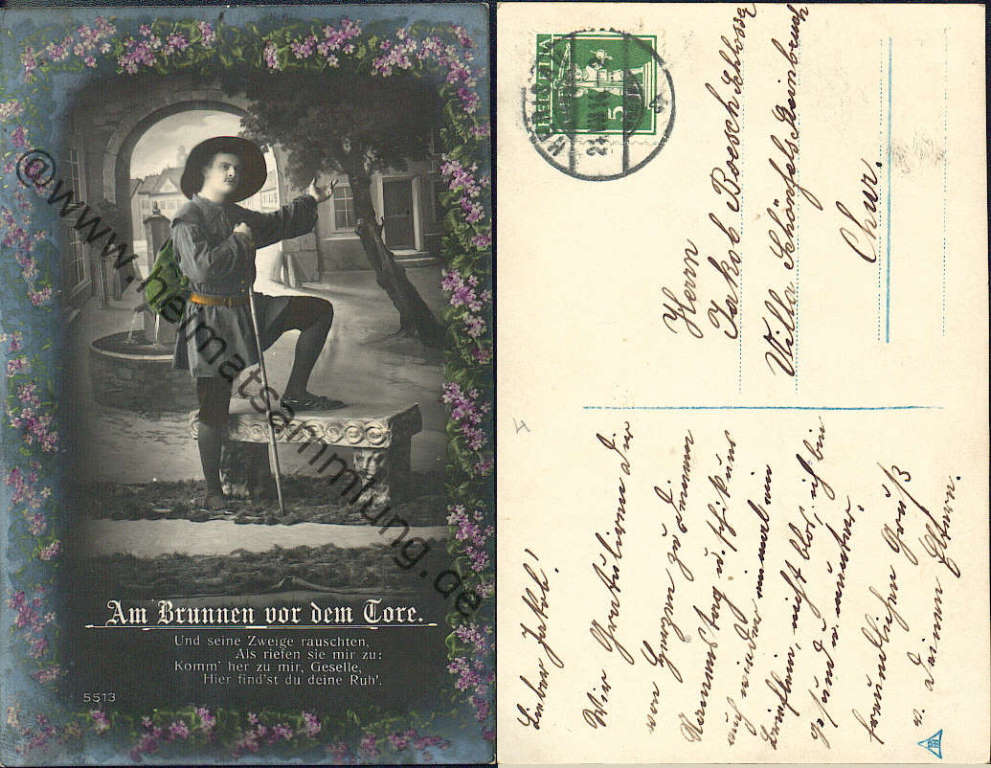 @www.heimatsammlung.de
Am Brunnen vor dem Tore.
Und seine Zweige rauschten,
Als riefen sie mir zu:
Komm' her zu mir, Geselle,
Hier find'st du deine Ruh'.
5513
HELVETIA
5
Herrn
Jakob Boesch
Villa Schönfels
Chur.
Wir Gratulieren dir
von Herzen zu deinem
Namenstag u. schikens
auch wieder einmal ein
nicht blos, ich bin
gesund u. munter,
freundlichen Gruß
v. deinen Eltern.